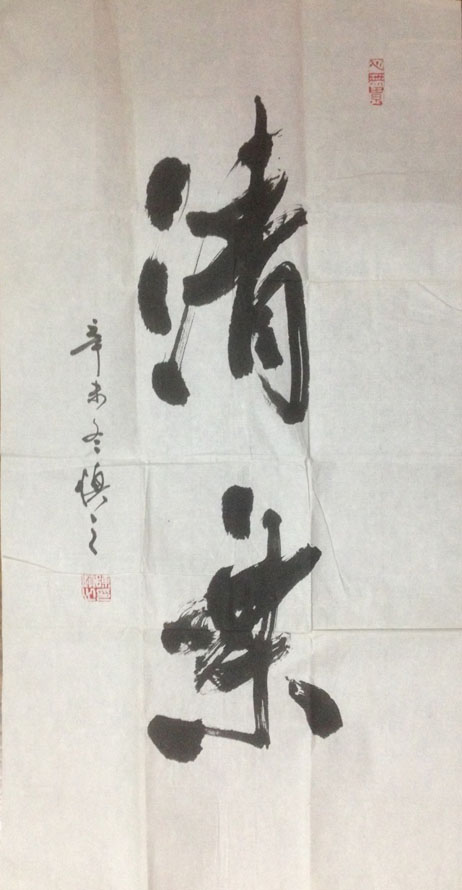 清樂
辛未冬慎之